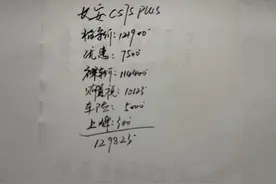 长安CS75PLUS
指导价:121900
优惠:7500
裸车价:114400
购置税:10125
车险:5000
上牌:300
129825